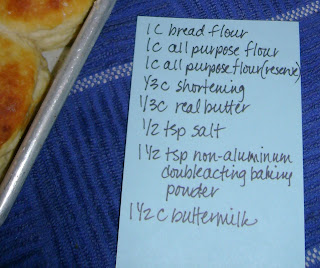 1C bread flour
1c all purpose flour
1c all purpose flour (reserve)
1/3c shortening
1/3c real butter
1/2 tsp salt
1 1/2 tsp non-aluminum
doubleacting baking
powder
1 1/2 C buttermilk